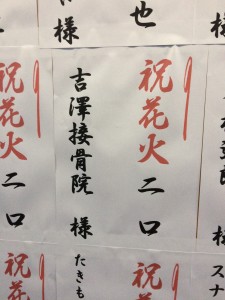 也
様
祝花火 二口
吉澤接骨院 様
祝花火 二口
様
スナ
祝花
たきも
祝花